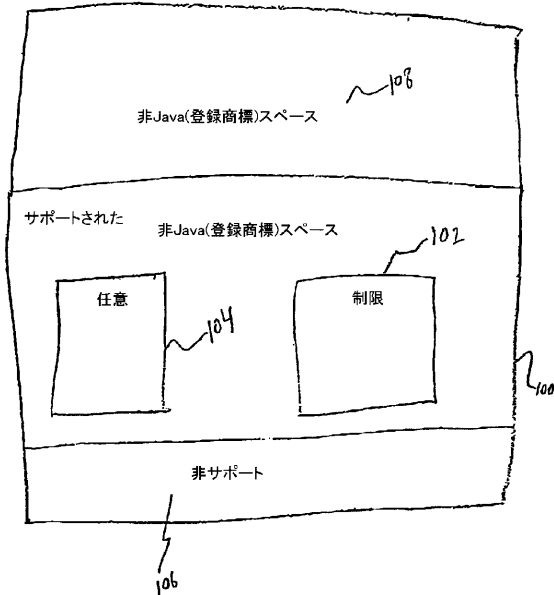 108
非Java(登録商標)スペース
サポートされた
非Java(登録商標)スペース
102
任意
制限
104
100
非サポート
106